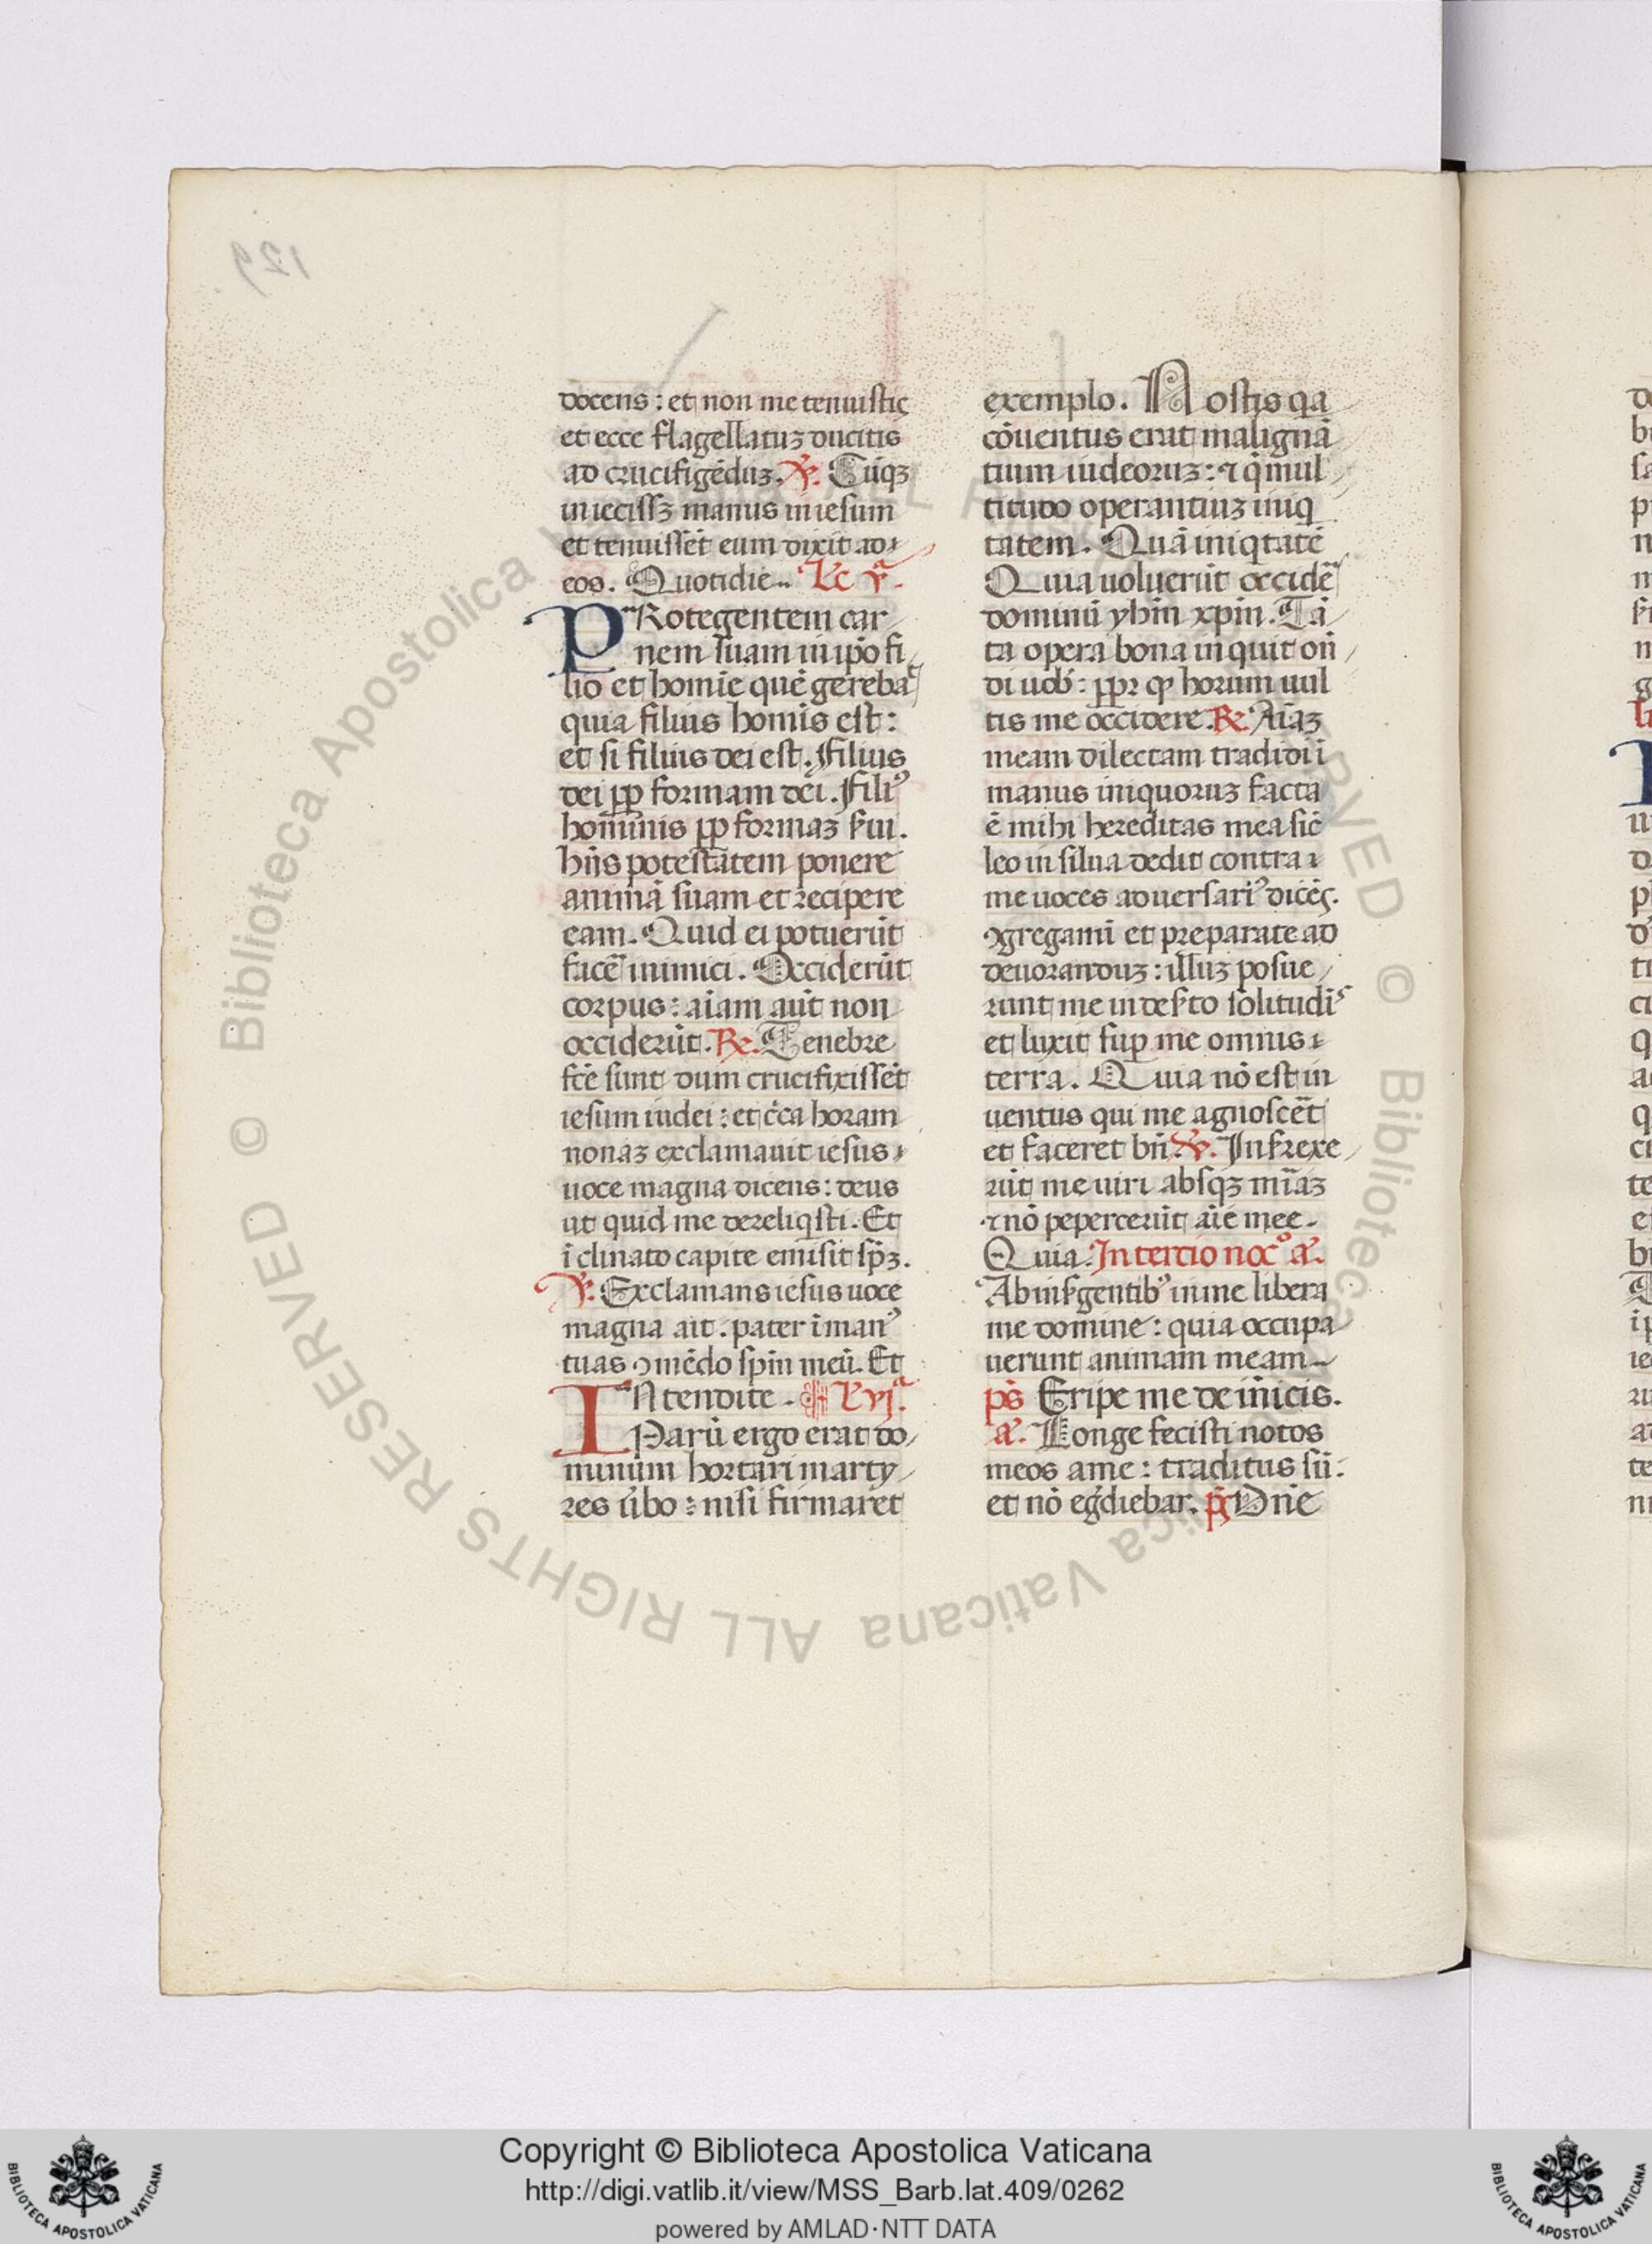 docens : et non me tenuistis
et ecce flagellatuz ducitis
ad crucifigēduz. ℣. Cūqȝ
iniecissȝ manus in iesum
et tenuissēt eum dixit ad
eos. Quotidie. Lc v.ª
PRotegentem car
nem suam in ipō fi
lio et homīe quē gereba
quia filius homīs est :
et si filius dei est. Filius
dei ꝓp formam dei. Fili⁹
hominis ꝓp formaz ẜui.
hñs potestatem ponere
animā suam et recipere
eam. Quid ei potuerūt
facē inimici. Occiderūt
corpus : aīam aūt non
occiderūt. ℟. Tenebre
fcē sunt dum crucifixissēt
iesum iudei : et c̄ca horam
nonaz exclamauit iesus
uoce magna dicens : deus
ut quid me dereliqsti. Et
īclinato capite emisit sp̄ȝ.
℣. Exclamans iesus uoce
magna ait. pater ī man⁹
tuas ꝯmēdo sp̄m meū. Et
INtendite. L vj.ª
Parū ergo erat do
minum hortari marty
res ūbo : nisi firmaret
exemplo. Nostis qa
cōuentus erat malignā
tium iudeoruz : ⁊ q̄ mul
titudo operantiuz iniq
tatem. Quā iniqtatē
Quia uoluerūt occidē
dominū yhm̄ xpm̄. Tā
ta opera bona inquit on̄
di uob̄ : ꝓpꝛ qꝫ horum uul
tis me occidere. ℟. Aīaȝ
meam dilectam tradidi ī
manus iniquoruz facta
ē mihi hereditas mea sic̄
leo in silua dedit contra
me uoces aduersari⁹ dicēs.
ꝯgregami et preparate ad
deuoranduz : illuz posue
runt me in deẜto solitudīs
et luxit suꝑ me omnis
terra. Quia nō est in
uentus qui me agnoscēt
et faceret bn̄. ℣. Inẜrexe
rūt me uiri absqȝ mīaȝ
⁊ nō pepercerūt aīe mee.
Quia. In tertio noc̊ a.ª
Ab inẜgentib⁹ in me libera
me domine : quia occupa
uerunt animam meam
p̄s Eripe me de inīcis.
a.ª Longe fecisti notos
meos a me : traditus sū :
et nō eg̓diebar. p̄s Dn̄e
129
© Biblioteca Apostolica Vaticana ALL RIGHTS RESERVED
Copyright © Biblioteca Apostolica Vaticana
http://digi.vatlib.it/view/MSS_Barb.lat.409/0262
powered by AMLAD·NTT DATA
BIBLIOTECA APOSTOLICA VATICANA
BIBLIOTECA APOSTOLICA VATICANA